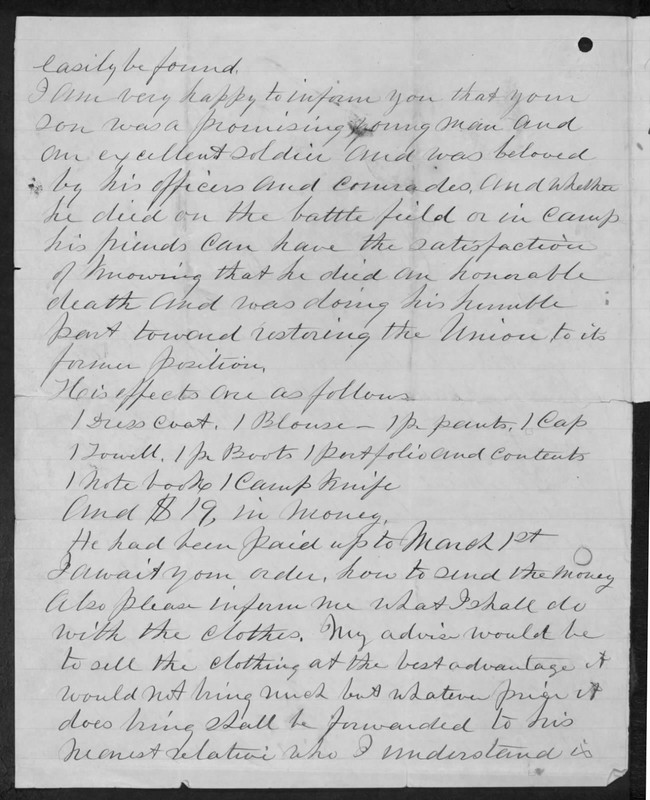 easily be found.
I am very happy to inform you that your
son was a promising young man and
an excellent soldier and was beloved
by his officers and comrades. And whether
he died on the battle field or in camp
his friends can have the satisfaction
of knowing that he died an honorable
death and was doing his humble
part toward restoring the Union to its
former position.
His effects are as follows
1 Dress Coat. 1 Blouse - 1 pr pants. 1 Cap
1 Towell. 1 pr Boots 1 portfolio and contents
1 Note book 1 Camp Knife
And $19, in Money.
He had been paid up to March 1st
I await your order, how to send the money
Also please inform me what I shall do
with the clothes. My advise would be
to sell the clothing at the best advantage it
would not bring much but whatever price it
does bring shall be forwarded to his
nearest relative who I understand is